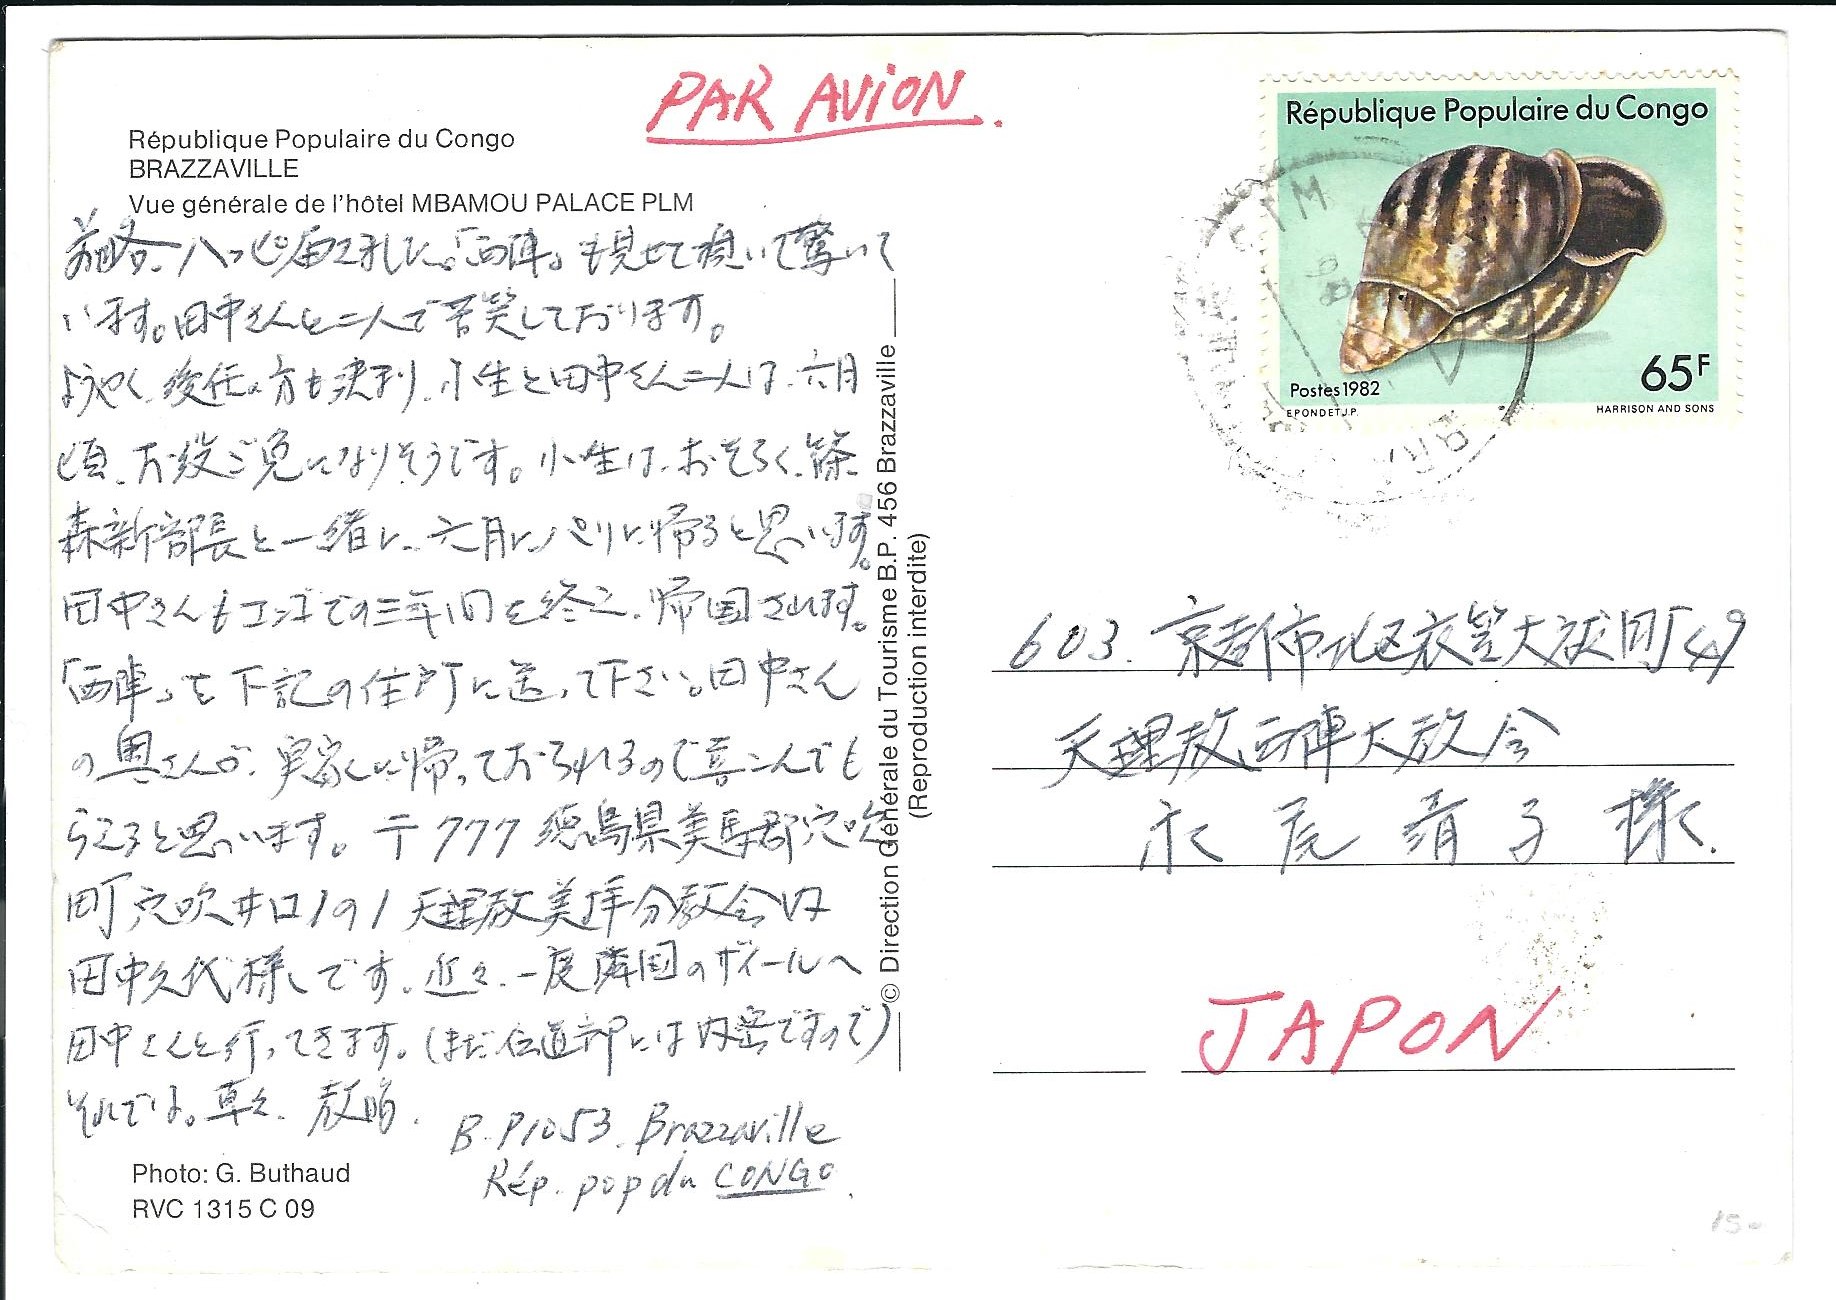 PAR AVION.
République Populaire du Congo
BRAZZAVILLE
Vue générale de l'hôtel MBAMOU PALACE PLM
前略 ハッピ届きました。「西陣」も見せて頂いて驚いて
います。田中さんと二人で苦笑しております。
ようやく後任の方も決まり、小生と田中さん二人は、六月
頃、お役ご免になりそうです。小生は、おそらく、篠
森新部長と一緒に、六月にパリに帰ると思います。
田中さんもコンゴでの三年間を終え、帰国されます。
「西陣」を下記の住所に送って下さい。田中さん
の奥さんが、実家に帰っておられるので喜こんでも
らえると思います。 〒777 徳島県美馬郡穴吹
町穴吹井口191 天理教美 分教会内
田中久代様です。近々、一度隣国のザイールへ
田中さんと行ってきます。(まだ伝道部には内密ですので)
それでは。草々
B.P 1053. Brazzaville
Rép. pop du CONGO.
Photo: G. Buthaud
RVC 1315 C 09
© Direction Générale du Tourisme B.P. 456 Brazzaville
(Reproduction interdite)
République Populaire du Congo
Postes 1982
65F
EPONDET J.P.
HARRISON AND SONS
603. 京都市北区衣笠大祓町49
天理教西陣大教会
永尾靖子様
JAPON
15-